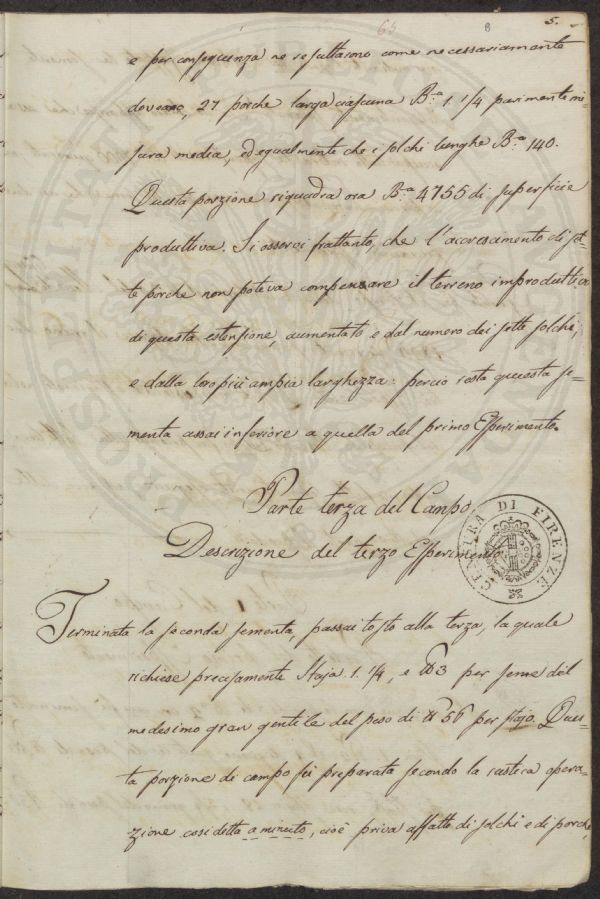 65 8 5.
e per conseguenza ne resultarono come necessariamente
doveano, 27 porche larga ciascuna B.a 1. 1/4 parimente mi=
sura media, ed egualmente che i solchi lunghe B.a 140.
Questa porzione riquadra ora B.a 4755 di superficie
produttiva. Si osservi frattanto, che l'accrescimento di sot=
te porche non poteva compensare il terreno improduttivo
di questa estensione, aumentato e dal numero dei sette solchi,
e dalla loro più ampia larghezza: percio resta questa se=
menta assai inferiore a quella del primo Esperimento.
Parte terza del Campo
Descrizione del terzo Esperimento.
CENSURA DI FIRENZE
Terminata la seconda sementa, passai tosto alla terza, la quale
richiese precisamente Staja 1. 1/4, e ℔ 3 per seme del
medesimo gran gentile del peso di ℔ 56 per stajo. Ques=
ta porzione di campo fù preparata secondo la rustica opera=
zione così detta a minuto, cioè priva affatto di solchi e di porche,